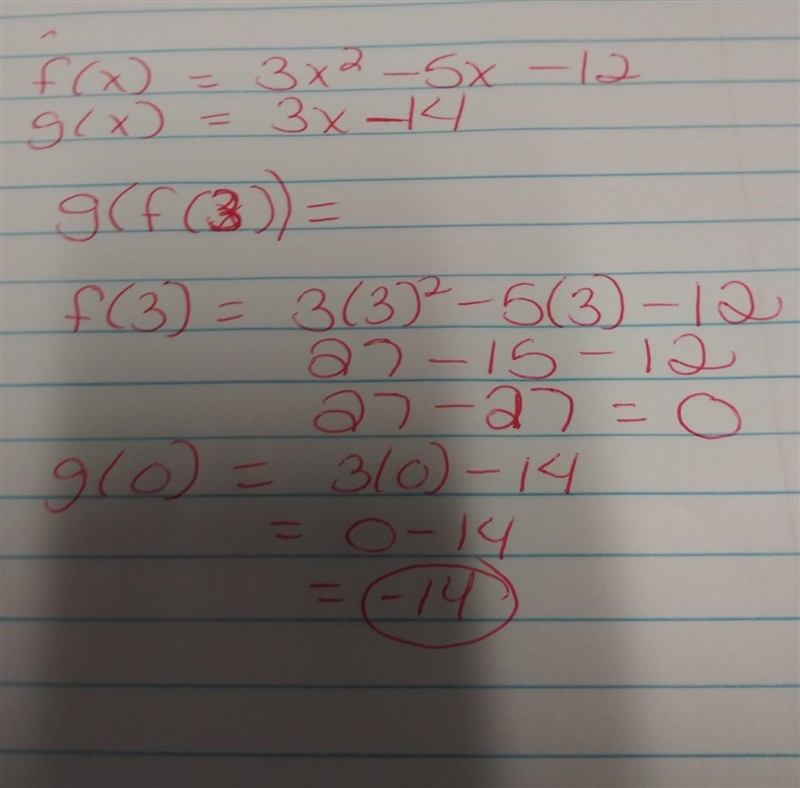 f(x) = 3x² - 5x - 12
g(x) = 3x - 14
g(f(3)) =
f(3) = 3(3)² - 5(3) - 12
27 - 15 - 12
27 - 27 = 0
g(0) = 3(0) - 14
= 0 - 14
= -14